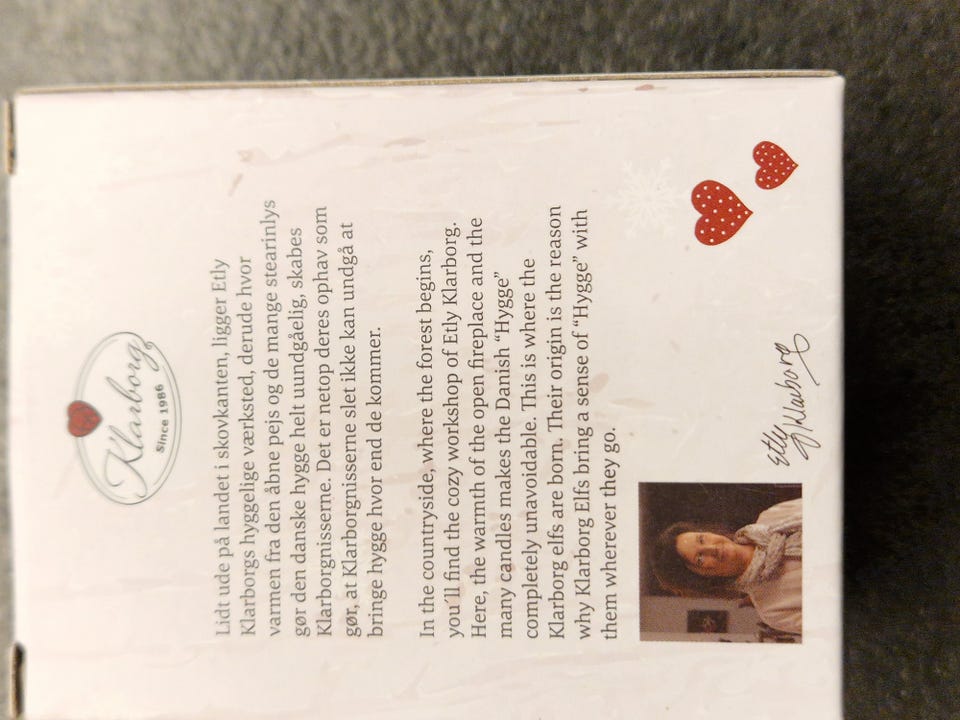 Klarborg
Since 1986
Lidt ude på landet i skovkanten, ligger Etly
Klarborgs hyggelige værksted, derude hvor
varmen fra den åbne pejs og de mange stearinlys
gør den danske hygge helt uundgåelig, skabes
Klarborgnisserne. Det er netop deres ophav som
gør, at Klarborgnisserne slet ikke kan undgå at
bringe hygge hvor end de kommer.
In the countryside, where the forest begins,
you´ll find the cozy workshop of Etly Klarborg.
Here, the warmth of the open fireplace and the
many candles makes the Danish “Hygge”
completely unavoidable. This is where the
Klarborg elfs are born. Their origin is the reason
why Klarborg Elfs bring a sense of “Hygge” with
them wherever they go.
Etly
Klarborg